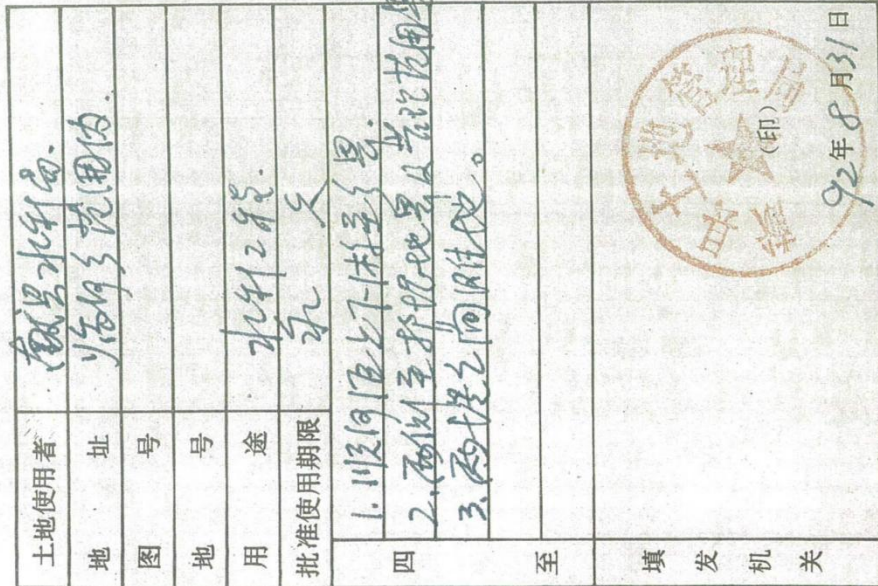 土地使用者 献县水利局.
地址 临河乡范围内.
图号
地号
用途 水利工程.
批准使用期限 永久
四至
1. 顺河沿上下村至界.
2. 两侧至护堤地界
3. 两堤之间胜地。
填发机关
土地管理
(印)
92年8月31日